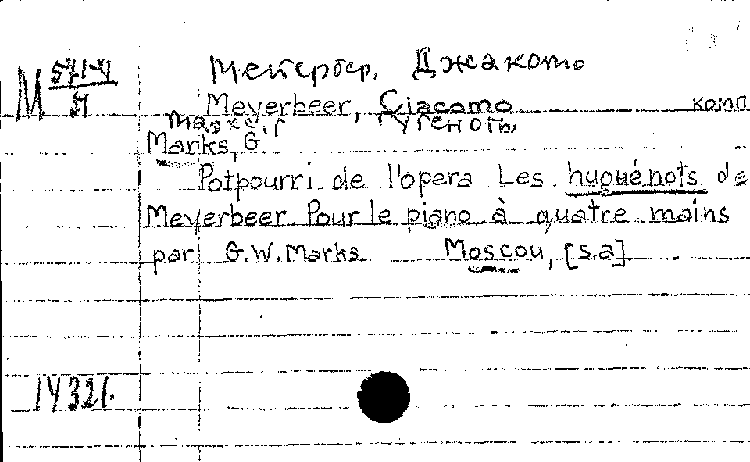 Мейербер, Джакомо
М
Meyerbeer, Giacomo комп
Гугеноты
Marks, G.
Potpourri de l'opera Les huguénots de
Meyerbeer Pour le piano à quatre mains
par G.W. Marks Moscou, [s.a]
14321.